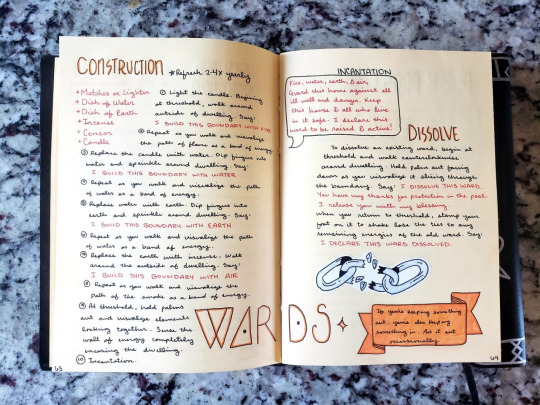 CONSTRUCTION *Refresh 2-4x yearly
+ Matches or Lighter
+ Dish of Water
+ Dish of Earth
+ Incense
+ Censor
+ Candle
① Light the candle. Beginning
at threshold, walk around
outside of dwelling. Say:
I BUILD THIS BOUNDARY WITH FIRE
② Repeat as you walk and visualize
the path of flame as a band of energy.
③ Replace the candle with water. Dip fingers into
water and sprinkle around dwelling. Say:
I BUILD THIS BOUNDARY WITH WATER
④ Repeat as you walk and visualize the path
of water as a band of energy.
⑤ Replace water with earth. Dip fingers into
earth and sprinkle around dwelling. Say:
I BUILD THIS BOUNDARY WITH EARTH
⑥ Repeat as you walk and visualize the path
of water as a band of energy.
⑦ Replace the earth with incense. Walk
around the outside of dwelling. Say:
I BUILD THIS BOUNDARY WITH AIR
⑧ Repeat as you walk and visualize the
path of the smoke as a band of energy.
⑨ At threshold, hold palms
out and visualize elements
locking together. Sense the
wall of energy completely
encasing the dwelling.
⑩ Incantation.
63
WARDS
INCANTATION
Fire, water, earth, & air,
Guard this house against all
ill will and danger. Keep
this house & all who live
in it safe. I declare this
ward to be raised & active!
DISSOLVE
To dissolve an existing ward, begin at
threshold and walk counterclockwise
around dwelling. Hold palm out facing
down as you visualize it slicing through
the boundary. Say: I DISSOLVE THIS WARD.
You have my thanks for protection in the past.
I release you with my blessing.
When you return to threshold, stamp your
foot on it to shake lose the ties to any
remaining energies of the old ward. Say:
I DECLARE THIS WARD DISSOLVED.
If you're keeping something
out, you're also keeping
something in. Air it out
occasionally.
64